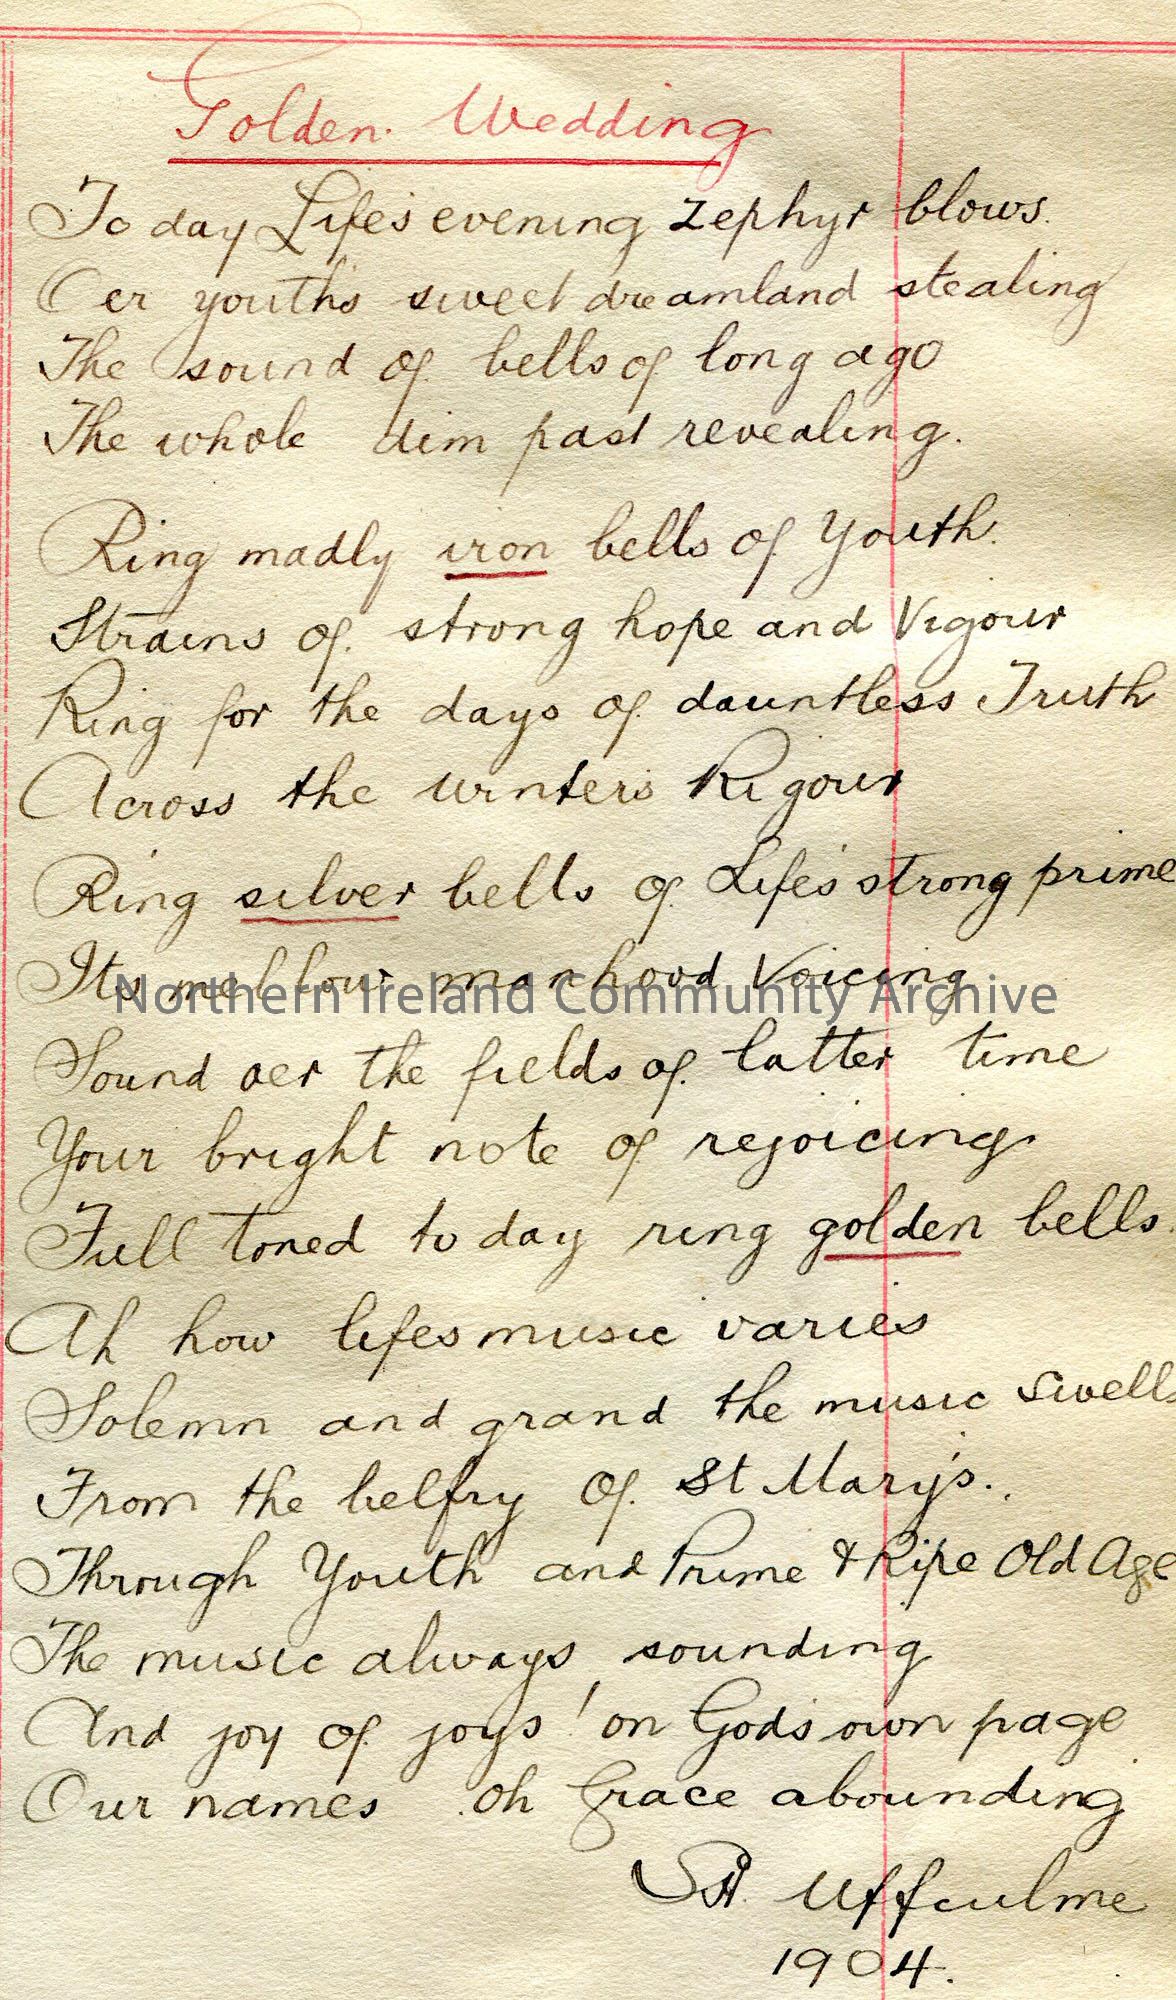 Golden. Wedding
To day Life's evening zephyr blows.
Oer youth's sweet dreamland stealing
The sound of bells of long ago
The whole dim past revealing.
Ring madly iron bells of Youth.
Strains of strong hope and Vigour
Ring for the days of dauntless Truth
Across the winters Rigour
Ring silver bells of Life's strong prime
Its mellow manhood Voicing
Northern Ireland Community Archive
Sound oer the fields of latter time
Your bright note of rejoicing.
Full toned to day ring golden bells.
Ah how lifes music varies
Solemn and grand the music swells
From the belfry of St Mary's..
Through Youth and Prime & Ripe Old Age
The music always sounding
And joy of joys! on Gods own page
Our names oh Grace abounding
Uffculme
1904.